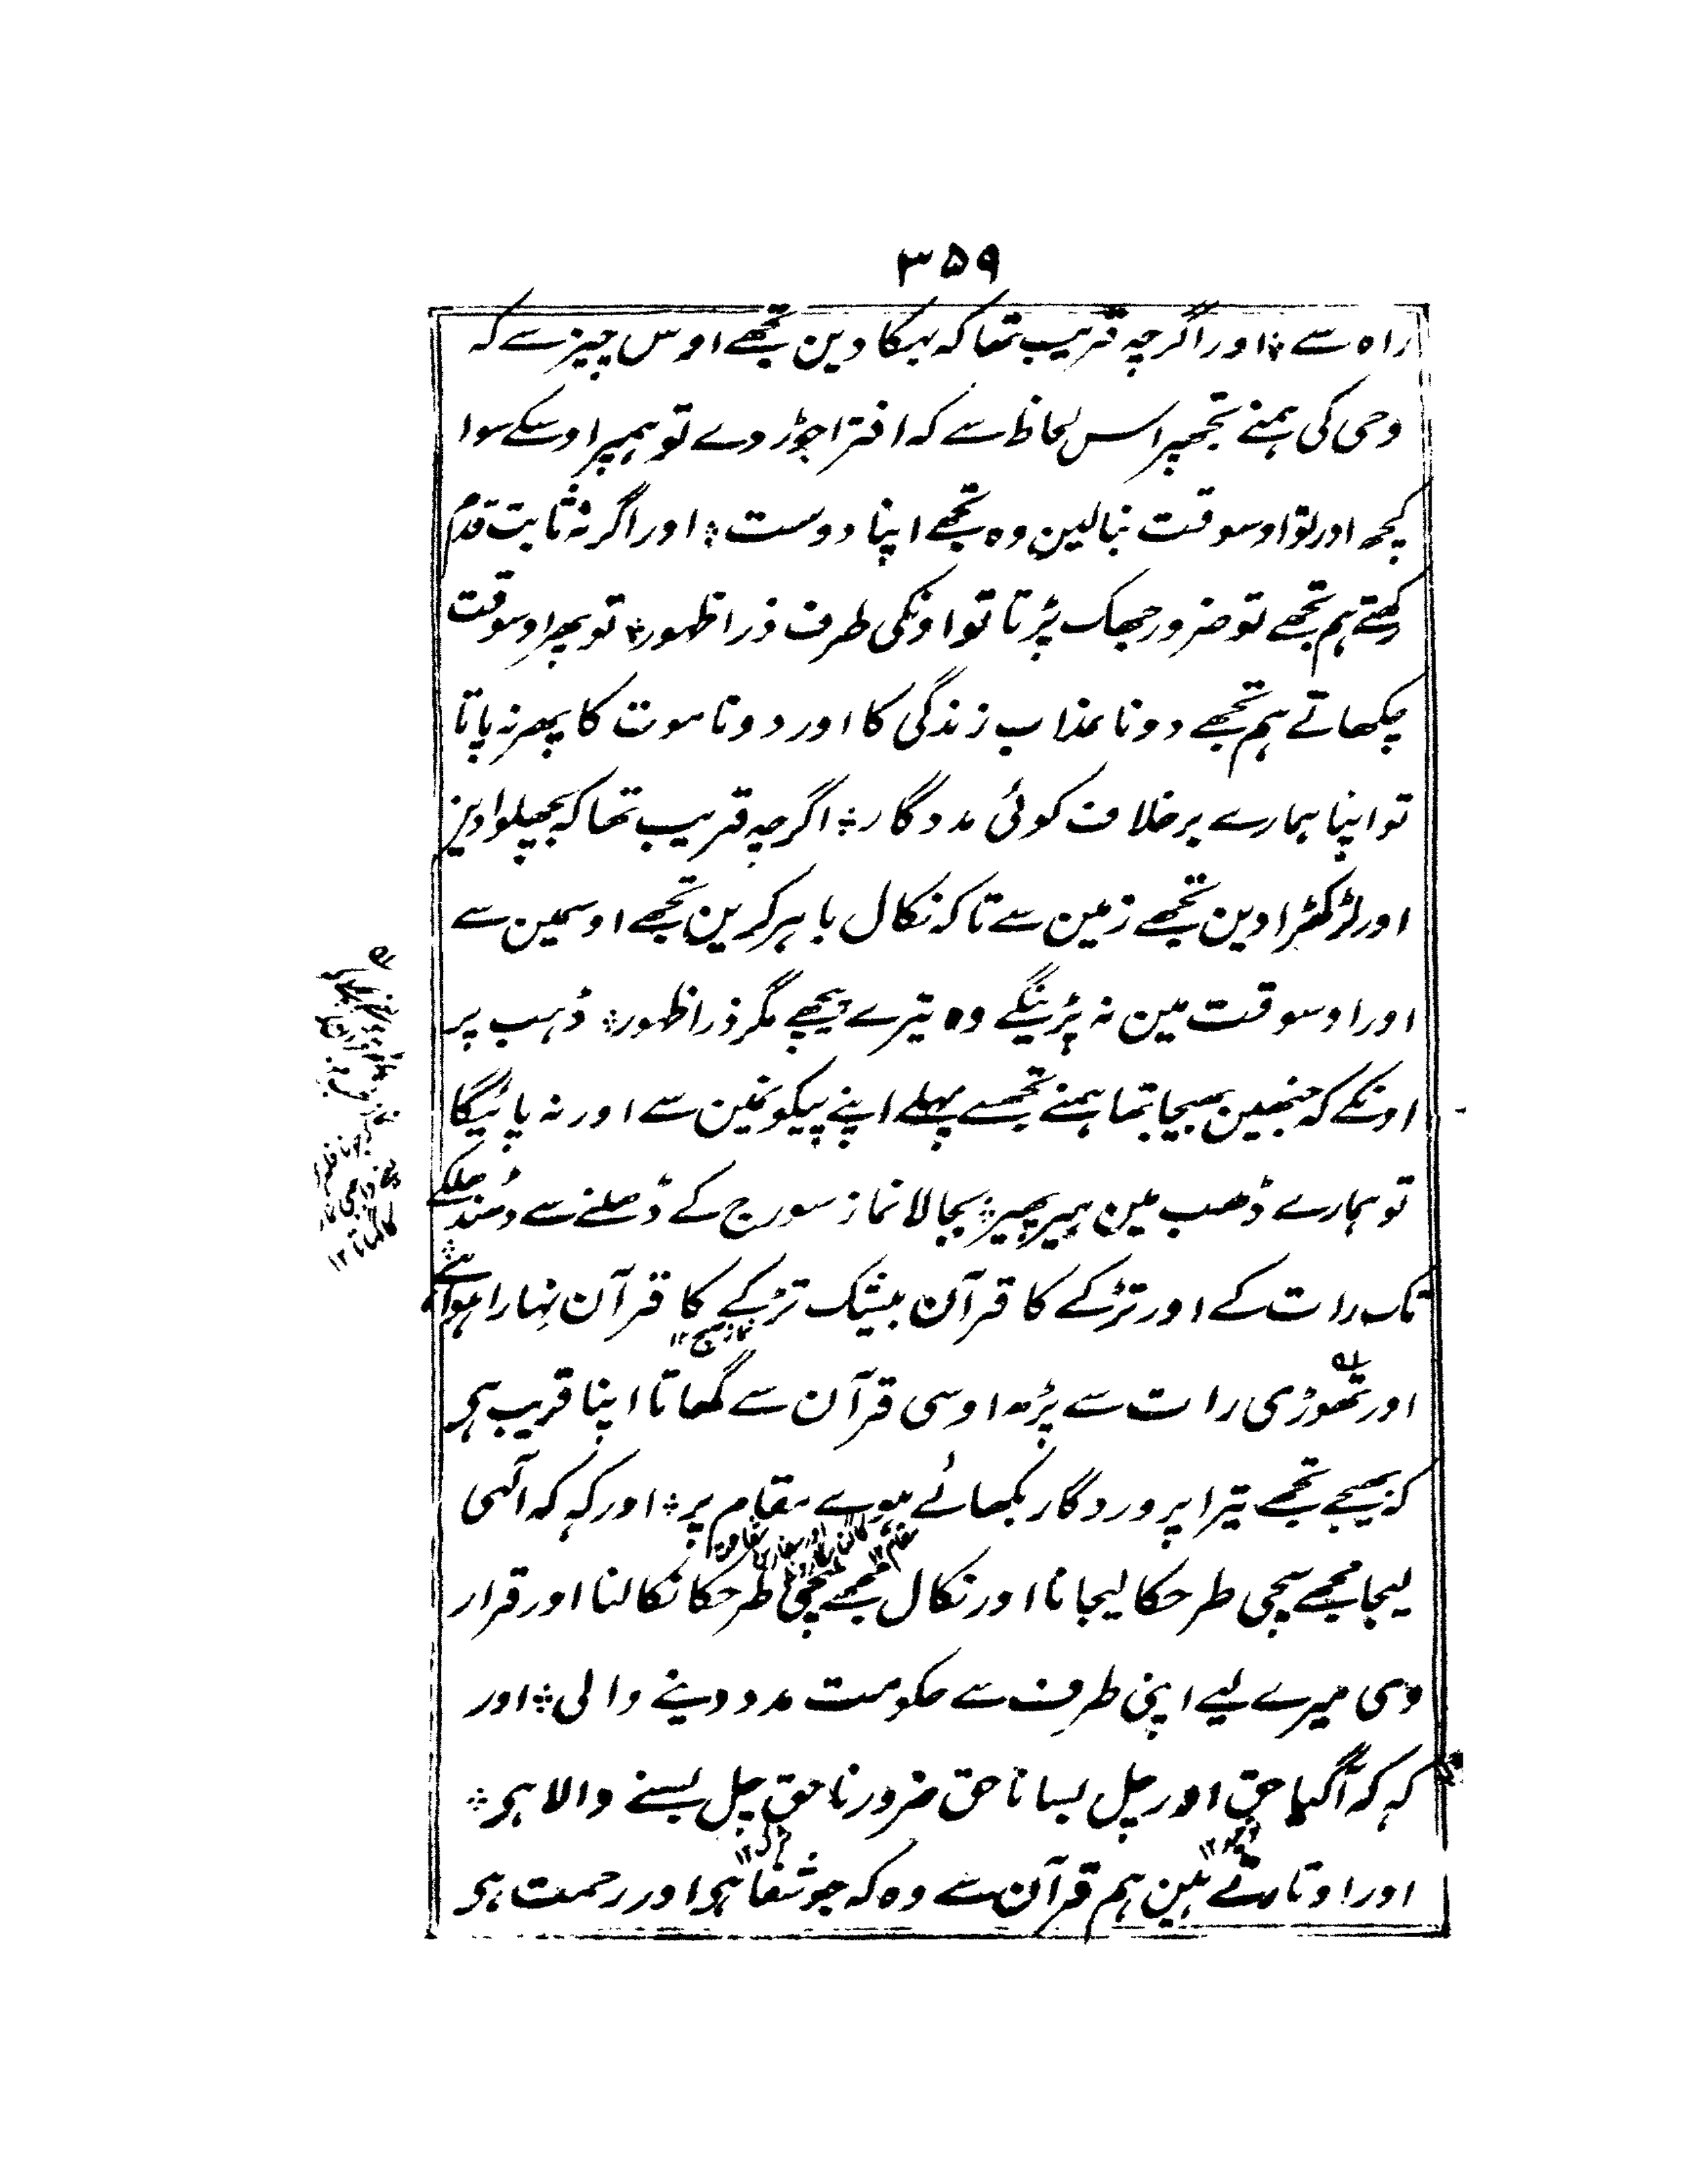 ۳۵۹
راہ سے ؞ اور اگرچہ قریب تھا کہ بہکا دین تجھے اوس چیز سے کہ
وحی کی ہمنے تجھپر اس لحاظ سے کہ افترا جوڑ دے تو ہمپر اوسکے سوا
کچھ اور تو اوسوقت بنالین وہ تجھے اپنا دوست ؞ اور اگر نہ ثابت قدم
رکھتے ہم تجھے تو ضرور جھک پڑتا تو اونکی طرف ذرا ظہور ؞ تو پھر اوسوقت
چکھاتے ہم تجھے دونا عذاب زندگی کا اور دونا موت کا پھر نہ پاتا
تو اپنا ہمارے برخلاف کوئی مددگار ؞ اگرچہ قریب تھا کہ پھپلوا دین
اور لڑکھڑا دین تجھے زمین سے تاکہ نکال باہر کرین تجھے اوسمین سے
اور اوسوقت مین نہ پڑینگے وہ تیرے پیچھے مگر ذرا ظہور ؞ ڈہب پر
اونکے کہ جنھین بھیجا تھا ہمنے تجھسے پہلے اپنے پیکونمین سے اور نہ پائیگا
تو ہمارے ڈھب مین ہیر پھیر ؞ بجا لا نماز سورج کے ڈھلنے سے دُھندھلکے
تک رات کے اور تڑکے کا قرآن بیشک تڑکے کا قرآن نہارا ہوا ہے ؞
نماز صبح ۱۲
اور تھوڑی رات سے پڑھ اوسی قرآن سے گھاتا اپنا قریب ہی
کہ بھیجے تجھے تیرا پروردگار بکھانے ہوے مقام پر ؞ اور کہ کہ الٰہی
لیجا مجھے سچی طرحکا لیجانا اور نکال مجھے سچی طرحکا نکالنا اور قرار
دی میرے لیے اپنی طرف سے حکومت مدد دینے والی ؞ اور
کہ کہ آگیا حق اور چل بسا ناحق ضرور ناحق چل بسنے والا ہی ؞
اور اوتارتے ہین ہم قرآن سے وہ کہ جو شفا ہی اور رحمت ہی